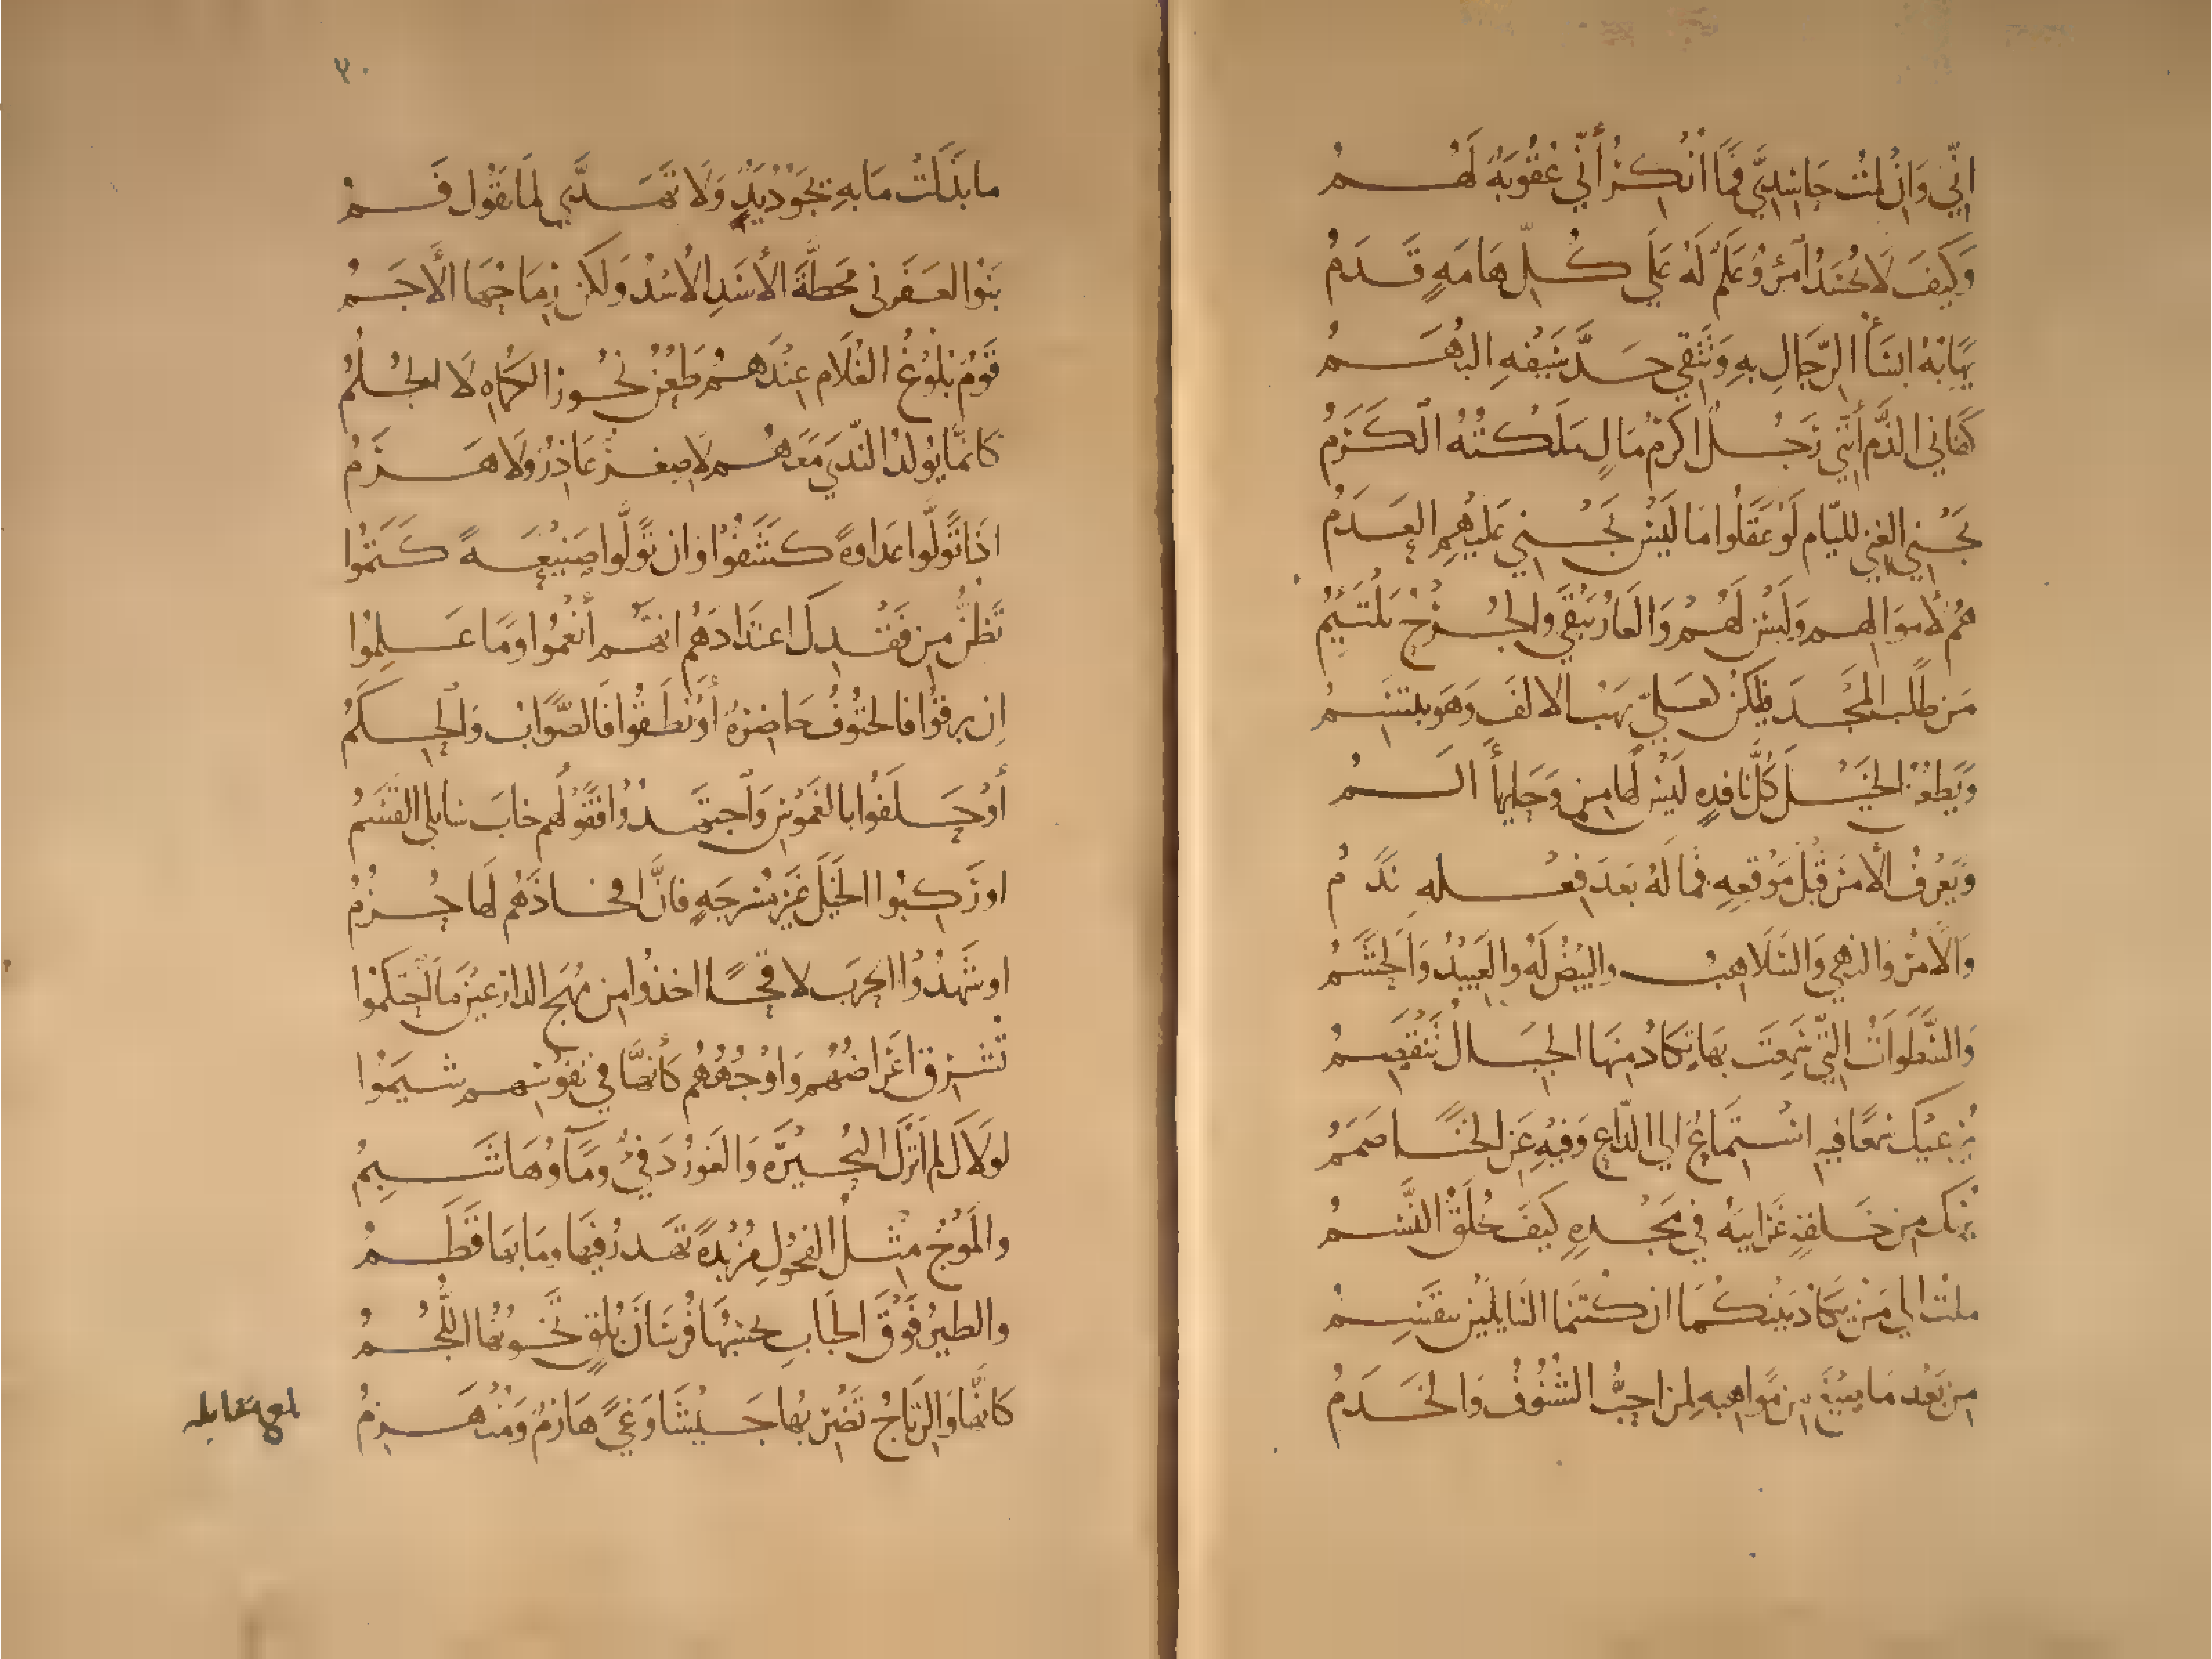 انّي وَانْ لُمْتُ حَاسِدِيَّ فَمَا أُنْكِرُ أَنِّي عُقُوبَةٌ لَهُمُ
وَكَيفَ لَا يُحْسَدُ امْرُؤٌ عَلَمٌ لَهُ عَلَى كُلِّ هَامَةٍ قَدَمُ
يَهَابُهُ ابْسَأُ الرِّجَالِ بِهِ وَتَتَّقِي حَدَّ سَيْفِهِ البُهَمُ
كَفَانِيَ الذَّمَّ أَنَّنِي رَجُلٌ اكْرَمُ مَالٍ مَلَكْتُهُ الْكَرَمُ
يَجْنِي الغِنَى لِلِّئَامِ لَوْ عَقَلُوا مَا لَيْسَ يَجْنِي عَلَيْهِمِ العَدَمُ
هُمُ لِأَمْوَالِهِم وَلَيْسَ لَهُمْ وَالْعَارُ يَبْقَى وَالْجُرْحُ يَلْتَئِمُ
مَن طَلَبَ الْمَجْدَ فَلْيَكُنْ كَعَلِيٍّ يَهَبُ الالفَ وَهوَ يبْتَسِمُ
وَيَطْعُنُ الْخَيْلَ كُلَّ نَافِذَةٍ لَيْسَ لَهَا مِن وَحَائِهَا أَلَمُ
وَيَعْرِفُ الأَمْرَ قَبْلَ مَوْقِعِهِ فَمَا لَهُ بَعْدَ فِعْلِهِ نَدَمُ
وَالْأَمْرُ وَالنَّهْيُ وَالسَّلَاهِبُ وَالبِيْضُ لَهُ وَالْعَبِيْدُ وَالْحَشَمُ
وَالسَّطَوَاتُ الَّتِي سَمِعْتَ بِهَا تَكَادُ مِنْهَا الجِبَالُ تَنْقَصِمُ
يُرْعِيكَ سَمْعًا فِيهِ اسْتِمَاعٌ الى الدَّاعِي وَفِيهِ عَنِ الخَنَا صَمَمُ
يُرِيكَ مِن خَلْقِهِ غَرَايِبَهُ فِي مَجْدِهِ كَيْفَ تُخْلَقُ النَّسَمُ
مِلْتُ الى مَنْ يَكَادُ بَيْنَكُمَا ان كُنْتُمَا السَّايِلَيْنِ يَنْقَسِمُ
مِن بَعْدِ مَا صِيْغَ مِن مَوَاهِبِهِ لِمَن احِبُّ الشُّنُوْفُ وَالْخَدَمُ
٢٠
ما بَذَلَتْ مَا بِهِ يَجُوْدُ يَدٌ وَلَا تَهَدَّى لِمَا يَقُولُ فَمُ
بَنُو العَفَرْنَى مَحَطَّةَ الأَسَدِ الأُسْدُ وَلَكِن رِمَاحُهَا الأَجَمُ
قَوْمٌ بُلُوْغُ الغُلَامِ عِنْدَهُم طَعْنُ نُحُورِ الكُمَاةِ لَا الحُلُمُ
كَأَنَّمَا يُولَدُ النَّدَى مَعَهُم لَا صِغَرٌ عَاذِرٌ وَلَا هَرَمُ
اذَا تَوَلَّوا عَدَاوَةً كَشَفُوا وَان تَوَلَّوا صَنِيْعَةً كَتَمُوا
تَظُنُّ مِن فَقْدِكَ اعْتِدَادَهُم انَّهُم أَنْعَمُوا وَمَا عَلِمُوا
إن برقُوا فالحُتُوفُ حَاضِرَةٌ أَوْ نَطَقُوا فَالصَّوَابُ وَالْحِكَمُ
أَوْ حَلَفُوا بِالغَمُوسِ وَاجْتَهَدُوا فَقَوْلُهُم خَابَ سَايِلِي القَسَمُ
او رَكِبُوا الْخَيْلَ غَيْرَ مُسْرَجَةٍ فَانَّ افْخَاذَهُم لَهَا حُزُمُ
او شَهِدُوا الحَرْبَ لَاقِحًا اخَذُوا مِن مُهَجِ الدَّارِعِيْنَ مَا احْتَكَمُوا
تُشْرِقُ اعْرَاضُهُم وَاوْجُهُهُم كَأَنَّهَا فِي نُفُوسِهِم شِيَمُ
لَوْلَاكَ لَمْ أَتْرُكِ البُحَيْرَةَ وَالغَوْرُ دَفِيٌّ وَمَآؤُهَا شَبِمُ
وَالْمَوْجُ مِثْلُ الفُحُولِ مُزْبِدَةً تَهْدِرُ فِيْهَا وَمَا بِهَا قَطَمُ
والطيرُ فَوْقَ الحَبَابِ تَحْسِبُهَا فُرْسَانَ بُلْقٍ تَخُوْنُهَا اللُّجُمُ
كَأَنَّهَا وَالرِّيَاحُ تَضْرِبُهَا جَيْشَا وَغًى هَازِمٌ وَمُنْهَزِمُ
بلغ مقابله